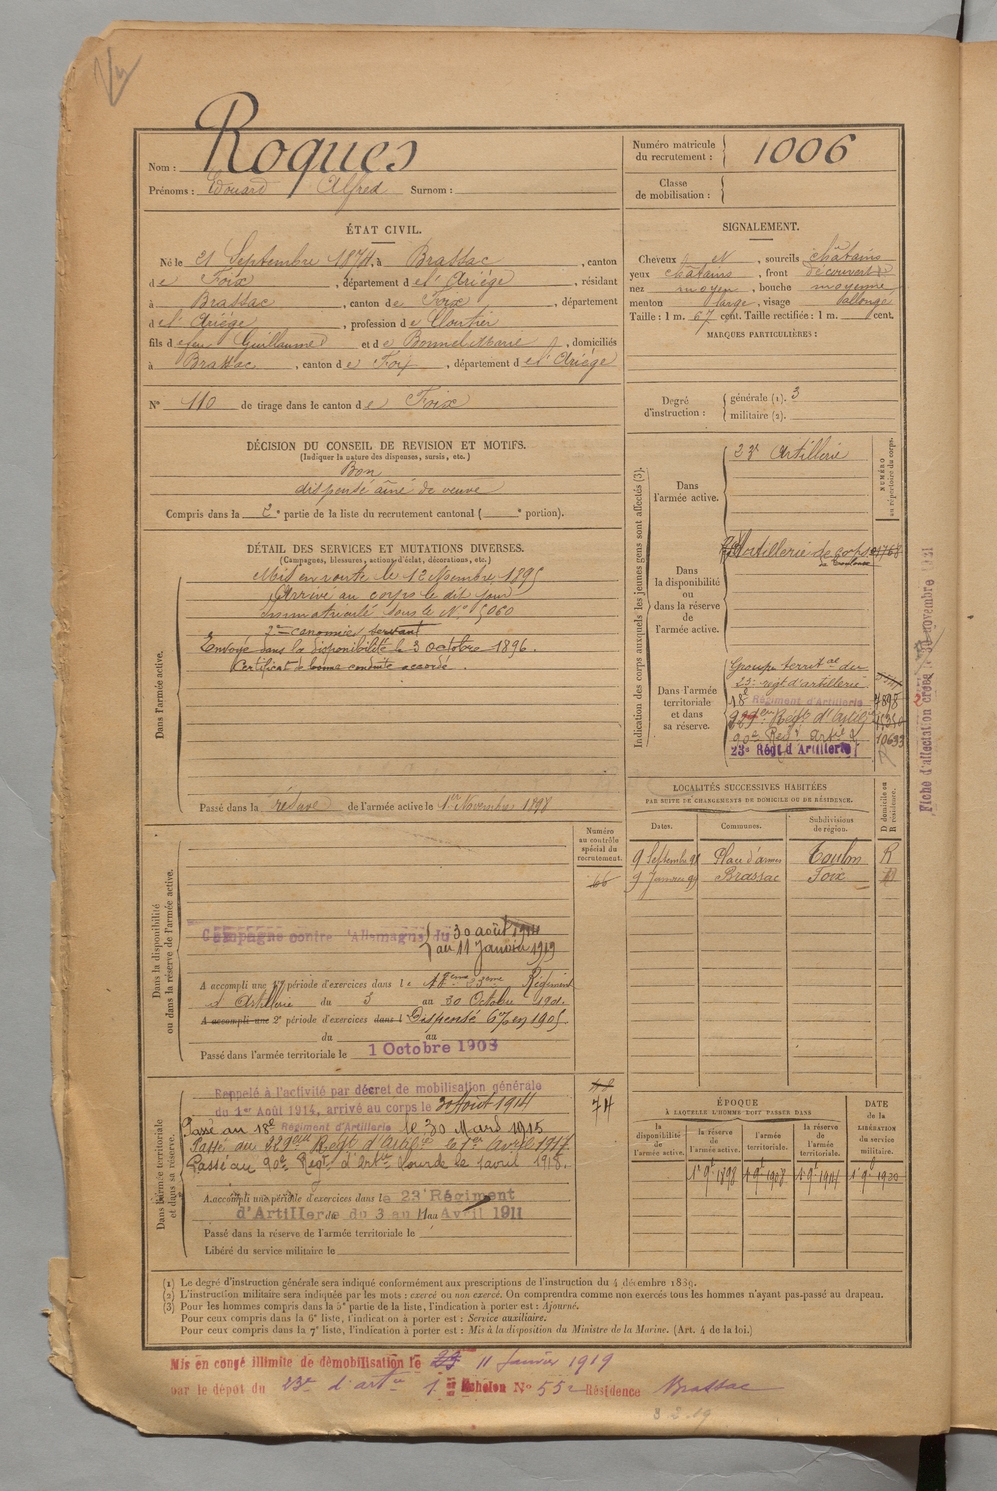 Roques
Nom :
Prénoms : Edouard Alfred Surnom :
Numéro matricule
du recrutement : 1006
Classe
de mobilisation :
ÉTAT CIVIL.
Né le 21 Septembre 1874, à Brassac, canton
de Foix, département de l'Ariège, résidant
à Brassac, canton de Foix, département
de l'Ariège, profession de Cloutier
fils de feu Guillaume et de Bonnel Marie, domiciliés
à Brassac, canton de Foix, département de l'Ariège
N° 110 de tirage dans le canton de Foix
SIGNALEMENT.
Cheveux N, sourcils châtains
yeux châtains, front découvert
nez moyen, bouche moyenne
menton large, visage allongé
Taille : 1 m. 67 cent. Taille rectifiée : 1 m. cent.
MARQUES PARTICULIÈRES :
Degré
d'instruction : générale (1). 3
militaire (2).
DÉCISION DU CONSEIL DE REVISION ET MOTIFS.
(Indiquer la nature des dispenses, sursis, etc.)
Bon
dispensé aîné de veuve
Compris dans la 2e partie de la liste du recrutement cantonal ( e portion).
DÉTAIL DES SERVICES ET MUTATIONS DIVERSES.
(Campagnes, blessures, actions d'éclat, décorations, etc.)
Dans l'armée active.
Mis en route le 12 Novembre 1895
Arrivé au corps le dit jour
immatriculé sous le N° 5060
2me canonnier servant
Envoyé dans la disponibilité le 3 octobre 1896.
Certificat de bonne conduite accordé.
Passé dans la réserve de l'armée active le 1er Novembre 1898
Indication des corps auxquels les jeunes gens sont affectés (3).
NUMÉRO
au répertoire du corps.
Dans
l'armée active.
23e Artillerie
Dans
la disponibilité
ou
dans la réserve
de
l'armée active.
Artillerie de corps
de Toulouse
Dans l'armée
territoriale
et dans
sa réserve.
Groupe territal du
23e régt d'artillerie
18e Régiment d'Artillerie 7898
90e Régt Art. 10633
23e Régt d'Artillerie
Fiche d'affectation
novembre
LOCALITÉS SUCCESSIVES HABITÉES
PAR SUITE DE CHANGEMENTS DE DOMICILE OU DE RÉSIDENCE.
Dates. Communes. Subdivisions
de région. D domicile ou
R résidence.
9 Septembre 98 Place d'armes Toulon R
9 Janvier 99 Brassac Foix
Dans la disponibilité
ou dans la réserve de l'armée active.
Numéro
au contrôle
spécial du
recrutement.
66
Campagne contre l'Allemagne du 30 août 1914
au 11 Janvier 1919
A accompli une 1re période d'exercices dans le 18eme 23eme Régiment
d'Artillerie du 3 au 30 Octobre 1901.
A accompli une 2e période d'exercices dans l Dispensé en 1905
du au
Passé dans l'armée territoriale le 1 Octobre 1908
Dans l'armée territoriale
et dans sa réserve.
74
Rappelé à l'activité par décret de mobilisation générale
du 1er Août 1914, arrivé au corps le 30 Août 1914
Passé au 18e Régiment d'Artillerie le 30 Mars 1915
Passé au 289eme Régt d'Artie le 1er Avril 1917
Passé au 90e Régt d'Artie Lourde le 1 avril 1918.
A accompli une période d'exercices dans le 23e Régiment
d'Artillerie du 3 au 11 Avril 1911
Passé dans la réserve de l'armée territoriale le
Libéré du service militaire le
ÉPOQUE
À LAQUELLE L'HOMME DOIT PASSER DANS
DATE
de la
LIBÉRATION
du service
militaire.
la
disponibilité
de
l'armée active.
la réserve
de
l'armée active.
l'armée
territoriale.
la réserve
de l'armée
territoriale.
(1) Le degré d'instruction générale sera indiqué conformément aux prescriptions de l'instruction du 4 décembre 1889.
(2) L'instruction militaire sera indiquée par les mots : exercé ou non exercé. On comprendra comme non exercés tous les hommes n'ayant pas passé au drapeau.
(3) Pour les hommes compris dans la 5e partie de la liste, l'indication à porter est : Ajourné.
Pour ceux compris dans la 6e liste, l'indication à porter est : Service auxiliaire.
Pour ceux compris dans la 7e liste, l'indication à porter est : Mis à la disposition du Ministre de la Marine. (Art. 4 de la loi.)
Mis en congé illimité de démobilisation le 11 Janvier 1919
par le dépôt du 23e d'artie 1er Echelon N° 552 Résidence Brassac